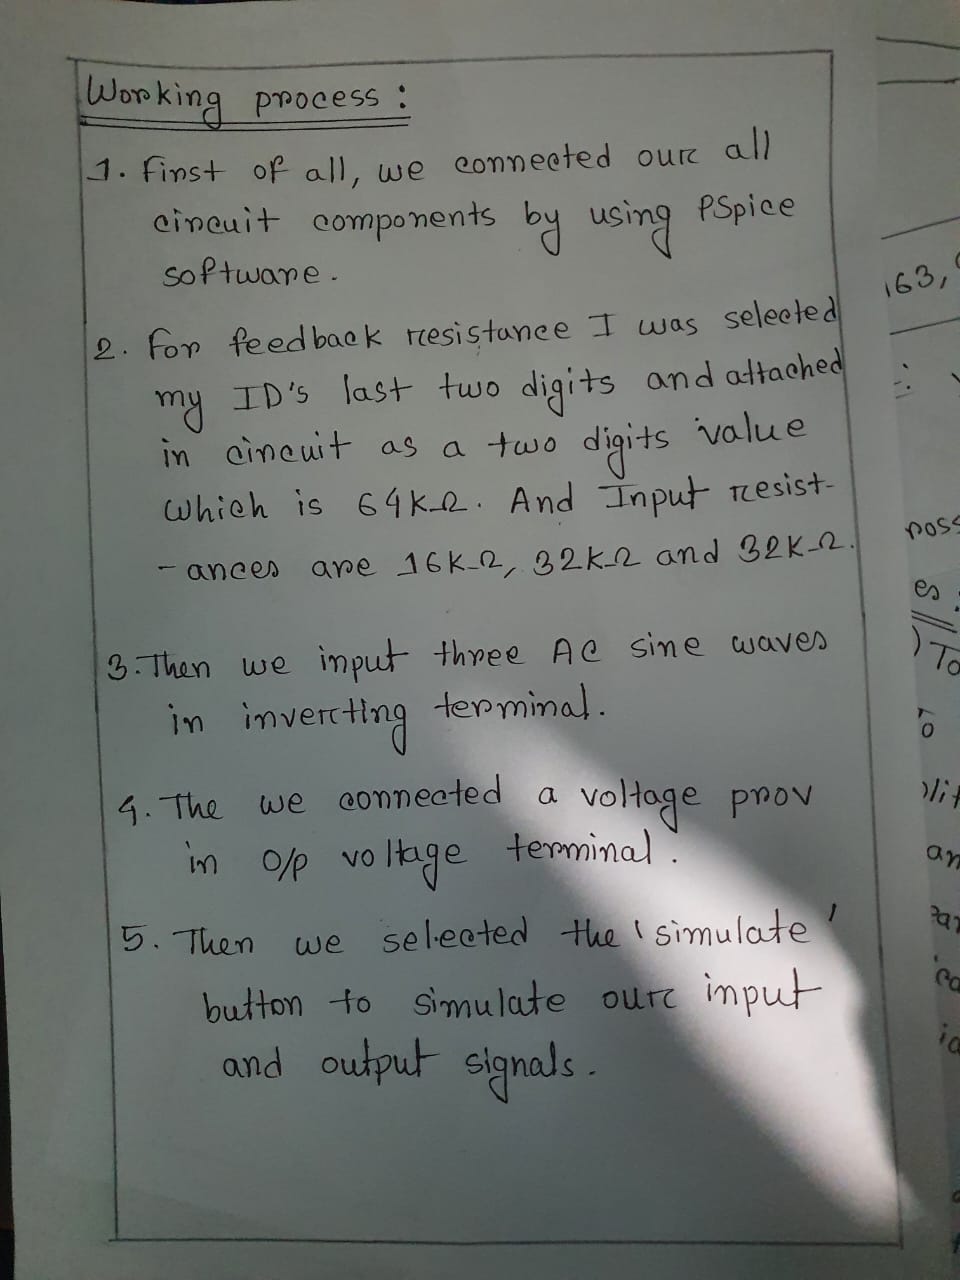 Working process :
1. First of all, we connected our all
circuit components by using PSpice
software.
2. For feedback resistance I was selected
my ID's last two digits and attached
in circuit as a two digits value
which is 64KΩ. And Input resist-
- ances are 16KΩ, 32KΩ and 32KΩ.
3. Then we input three AC sine waves
in inverting terminal.
4. The we connected a voltage prov
in o/p voltage terminal.
5. Then we selected the 'simulate'
button to simulate our input
and output signals.
163,
poss
es
To
an